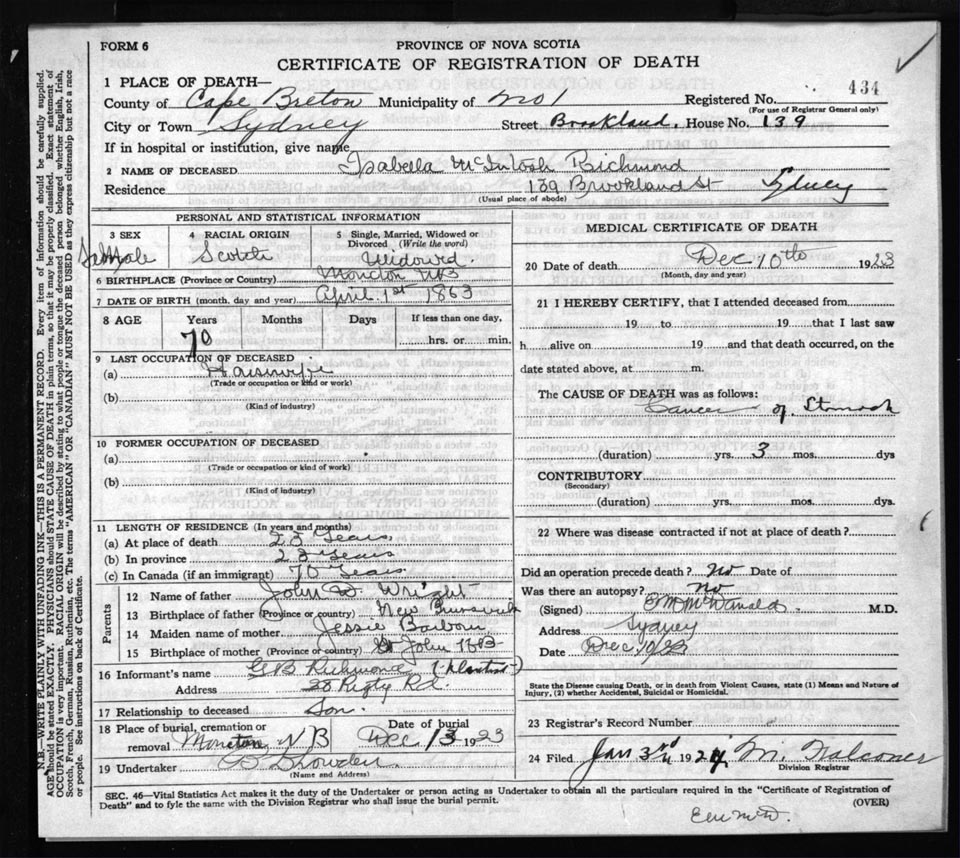 FORM 6
PROVINCE OF NOVA SCOTIA
CERTIFICATE OF REGISTRATION OF DEATH
434
1 PLACE OF DEATH—
County of Cape Breton Municipality of No 1 Registered No.
(For use of Registrar General only)
City or Town Sydney Street Brookland, House No. 139
If in hospital or institution, give name
2 NAME OF DECEASED Isabella McIntosh Richmond
Residence 139 Brookland St Sydney
(Usual place of abode)
PERSONAL AND STATISTICAL INFORMATION
3 SEX
4 RACIAL ORIGIN Scotch
5 Single, Married, Widowed or Divorced (Write the word) Widowed
6 BIRTHPLACE (Province or Country) Moncton NB
7 DATE OF BIRTH (month, day and year) April 1st 1863
8 AGE Years Months Days If less than one day,
70 hrs. or min.
9 LAST OCCUPATION OF DECEASED
(a) Housewife
(Trade or occupation or kind or work)
(b)
(Kind of industry)
10 FORMER OCCUPATION OF DECEASED
(a)
(Trade or occupation or kind of work)
(b)
(Kind of industry)
11 LENGTH OF RESIDENCE (In years and months)
(a) At place of death 23 Years
(b) In province 23 Years
(c) In Canada (if an immigrant) 70 Years
Parents
12 Name of father John D. Wright
13 Birthplace of father (Province or country) New Brunswick
14 Maiden name of mother Jessie
15 Birthplace of mother (Province or country) St John NB
16 Informant's name G B Richmond
Address 38 Rigby Rd.
17 Relationship to deceased Son.
18 Place of burial, cremation or removal Moncton NB Date of burial Dec 13 1923
19 Undertaker
(Name and Address)
MEDICAL CERTIFICATE OF DEATH
20 Date of death Dec 10th 1923
(Month, day and year)
21 I HEREBY CERTIFY, that I attended deceased from
19 to 19 that I last saw
h alive on 19 and that death occurred, on the
date stated above, at m.
The CAUSE OF DEATH was as follows:
Cancer of Stomach
(duration) yrs. 3 mos. dys
CONTRIBUTORY
(Secondary)
(duration) yrs. mos. dys.
22 Where was disease contracted if not at place of death?
Did an operation precede death? No Date of
Was there an autopsy? No
(Signed) McDonald M.D.
Address Sydney
Date Dec 10/23
State the Disease causing Death, or in death from Violent Causes, state (1) Means and Nature of
Injury, (2) whether Accidental, Suicidal or Homicidal.
23 Registrar's Record Number
24 Filed Jan 3rd 1924
Division Registrar
SEC. 46—Vital Statistics Act makes it the duty of the Undertaker or person acting as Undertaker to obtain all the particulars required in the "Certificate of Registration of
Death" and to fyle the same with the Division Registrar who shall issue the burial permit.
(OVER)
N.B.—WRITE PLAINLY WITH UNFADING INK—THIS IS A PERMANENT RECORD. Every item of information should be carefully supplied.
AGE should be stated EXACTLY. PHYSICIANS should STATE CAUSE OF DEATH in plain terms, so that it may be properly classified. Exact statement of
OCCUPATION is very important. RACIAL ORIGIN will be described by stating to what people or tongue the deceased person belonged whether English, Irish,
Scotch, French, German, Russian, Ruthenian, etc. The terms "AMERICAN" OR "CANADIAN" MUST NOT BE USED as they express citizenship but not a race
or people. See instructions on back of Certificate.